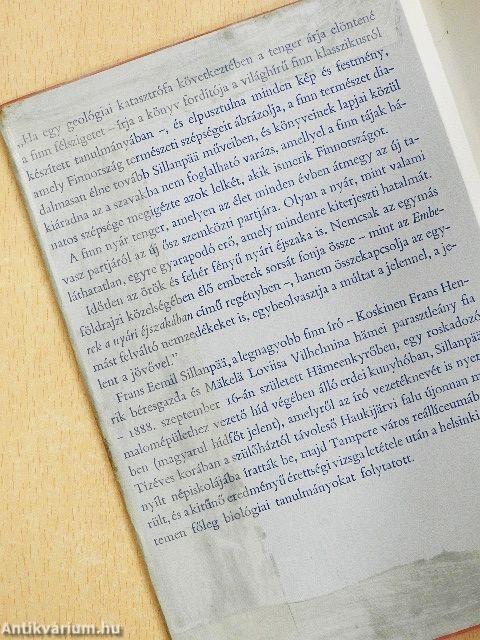 „Ha egy geológiai katasztrófa következtében a tenger árja elöntené
a finn félszigetet – írja a könyv fordítója a világhírű finn klasszikusról
készített tanulmányában –, és elpusztulna minden kép és festmény,
amely Finnország természeti szépségeit ábrázolja, a finn természet dia-
dalmasan élne tovább Sillanpää műveiben, és könyveinek lapjai közül
kiáradna az a szavakba nem foglalható varázs, amellyel a finn tájak bá-
natos szépsége megigézte azok lelkét, akik ismerik Finnországot.
A finn nyár tenger, amelyen az élet minden évben átmegy az új ta-
vasz partjáról az új ősz szemközti partjára. Olyan a nyár, mint valami
láthatatlan, egyre gyarapodó erő, amely mindenre kiterjeszti hatalmát.
Időtlen az örök és fehér fényű nyári éjszaka is. Nemcsak az egymás
földrajzi közelségében élő emberek sorsát fonja össze – mint az Embe-
rek a nyári éjszakában című regényben –, hanem összekapcsolja az egy-
mást felváltó nemzedékeket is, egybeolvasztja a múltat a jelennel, a je-
lent a jövővel.”
Frans Eemil Sillanpää, a legnagyobb finn író – Koskinen Frans Hen-
rik béresgazda és Mäkelä Loviisa Vilhelmina hämei parasztleány fia
– 1888. szeptember 16-án született Hämeenkyröben, egy roskadozó
malomépülethez vezető híd végében álló erdei kunyhóban, Sillanpää
ben (magyarul hídfőt jelent), amelyről az író vezetéknevét is nyer
Tízéves korában a szülőháztól távoleső Haukijärvi falu újonnan m
nyílt népiskolájába íratták be, majd Tampere város reállíceumáb
rült, és a kitűnő eredményű érettségi vizsga letétele után a helsinki
temen főleg biológiai tanulmányokat folytatott.
Antikvárium.hu